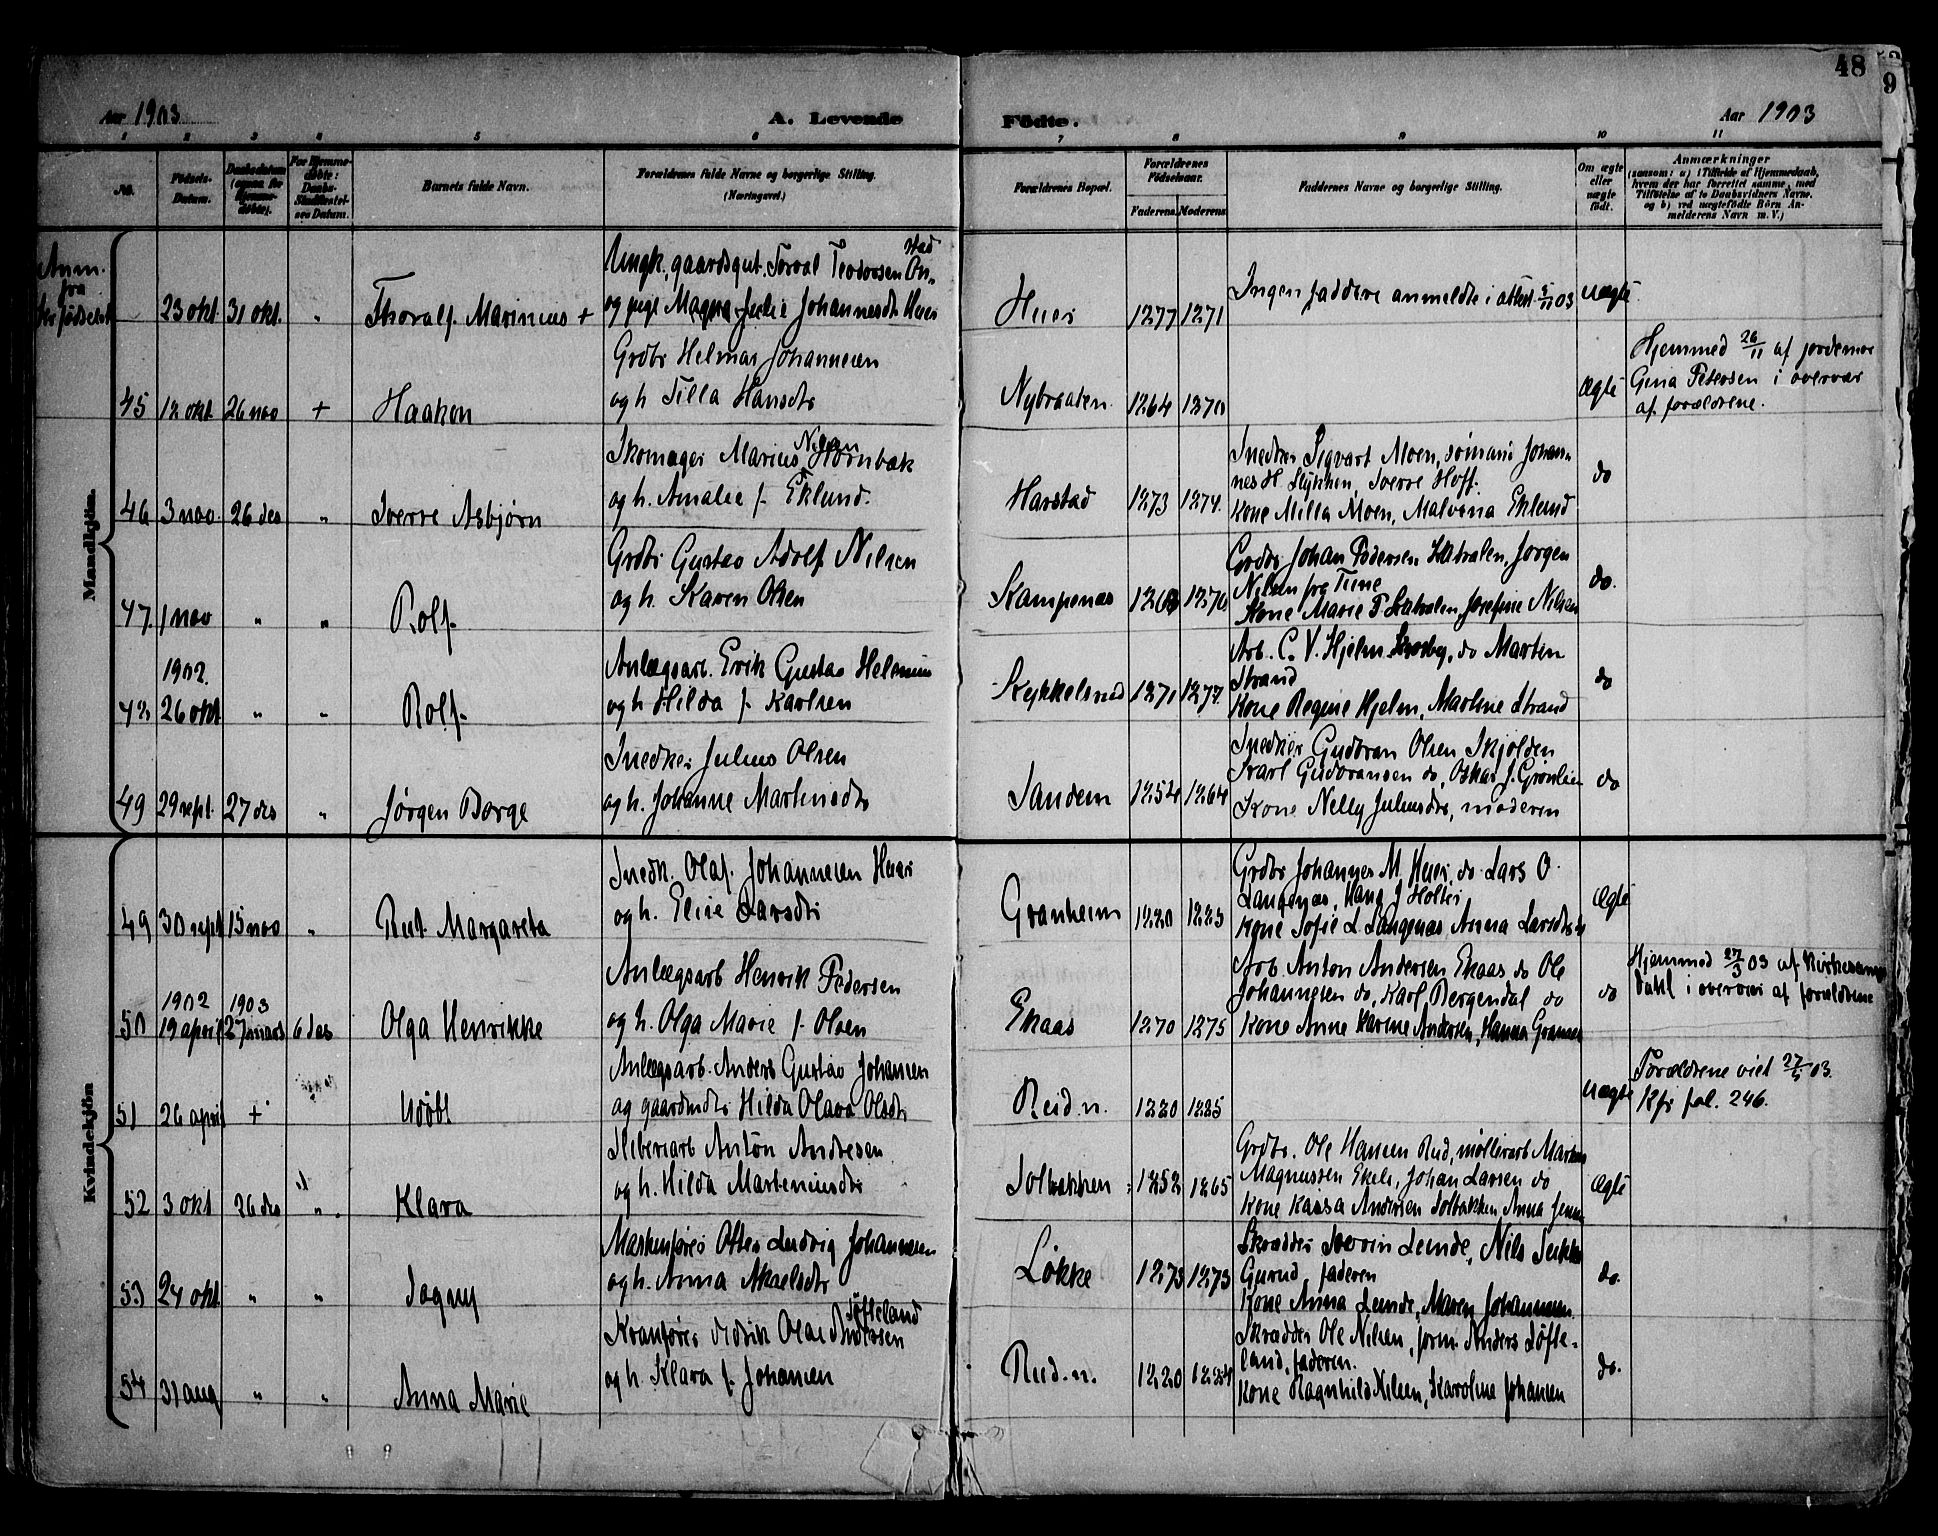 48
9
Aar 1903
A. Levende
Födte.
Aar 1903
1 2 3 4 5 6 7 8 9 10 11
No.
Födsels-Datum.
Daabsdatum
Barnets fulde Navn.
Forældrenes fulde Navne og borgerlige Stilling.
(Næringsvei.)
Forældrenes Bopæl.
Forældrenes Födselsaar.
Faderens. Moderens.
Faddernes Navne og borgerlige Stilling.
Om ægte eller uægte födt.
Anmærkninger
(saasom: a) i Tilfælde af Hjemmedaab,
hvem der har forrettet samme, med
Tilföielse af to Daabsvidners Navne,
og b) ved uægtefödte Börn An-
melderens Navn m. V.)
Mandkjön.
Anm.
fra
23 okt. 31 okt. " Thoralf Marinius +
Ungk. gaardsgut Torval Teodorsen
og pige Magna Julie Johannesdtr Huer
Huer 1877 1871
Ingen faddere anmeldte i attest 5/11 03
uægte
45 12 okt 26 nov + Haakon
Grdbr Helmar Johannesen
og h. Tilla Hansdtr
Nybraaten 1864 1870
ægte
Hjemmed 26/11 af jordemor
Gina Petersen i overvær
af forældrene.
46 3 nov. 26 des " Sverre Asbjørn
Skomager Marius Nilsen Hornbæk
og h. Amalie f. Eklund.
Harstad 1873 1874.
Snedker Sigvart Moen, sømand Johan-
nes H Slykken, Sverre Hoff.
Kone Milla Moen, Malvina Eklund
do
47. 1 nov " " Rolf
Grdbr Gustav Adolf Nilsen
og h. Karen Olsen
Kampenæs 1870
Grdbr Johan Pedersen Skatvalen, Jørgen
Nilsen fra Tune
Kone Marie P. Skatvalen, Josefine Nilsen
do.
1902.
48 26 okt " " Rolf
Anlægsarb. Erik Gustav Helenius
og h Hilda f. Karlsen
Kykkelsrud 1871 1877.
Arb. C. V. Hjelm Skodby, do Martin
Strand
Kone Regine Hjelm, Martine Strand
do
49 29 sept. 27 des " Jørgen Borge
Snedker Julius Olsen
og h. Johanne Martinsdtr
Sandem 1854 1864
Snedker Gudbran Olsen Skjolden
Karl Gudbransen do, Oskar J. Grønlien
Kone Nelly Juliusdtr, moderen
do
Kvindekjön
49 30 sept 15 nov " Rut Margareta
Snedk. Olaf Johannesen Huer
og h. Elise Larsdtr
Granheim 1880 1883
Grdbr Johannes M. Huer, do Lars O.
Langenæs, Hans J Holter
Kone Sofie L Langenæs, Anna Larsdtr
ægte
1902 1903
50 19 april 27 6 des Olga Henrikke
Anlægsarb Henrik Pedersen
og h. Olga Marie f. Olsen
Ekaas 1870 1875
Arb. Anton Andersen Ekaas do Ole
Johannesen do, Karl Bergendal do
Kone Anne Karine Andersen, Hanna
do
Hjemmed 27/3 03 af Kirkesanger
Dahl i overvær af forældrene
51 26 april + Udøbt
Anlægsarb. Anders Gustav Johansen
og gaardmdtr Hilda Olava Olsdtr
Rud. n. 1880 1885
uægte
Forældrene viet 27/5 03.
Kfr fol. 246.
52 3 okt 26 des " Klara
Sliberiarb Anton Andresen
og h. Hilda Marteniusdtr
Solbakken 1852 1865
Grdbr. Ole Hansen Rud, møllerarb Martin
Magnussen Ekeli, Johan Larsen do
Kone Kaisa Andersen Solbakken Anna
ægte
53 24 okt " " Dagny
Maskinfører Otter Ludvig Johannesen
og h. Anna Akselsdtr
Løkke 1873 1873
Skrædder Severin Lunde, Nils
faderen
Kone Anna Lunde, Maren Johannesen.
do.
54 31 aug " " Anna Marie
Kranfører Olai Andersen Løfteland
og h. Klara f. Johansen
Rud. n. 1880 1884
Skrædder Ole Nilsen, form. Anders Løfte-
land, faderen.
Kone Ragnhild Nilsen, Karoline Johansen
do.